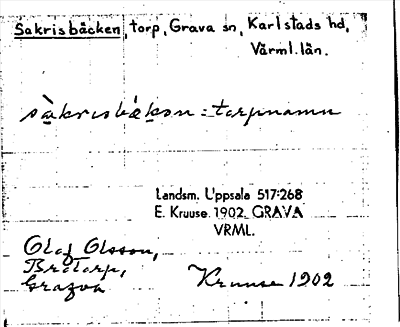 Sakrisbäcken, torp, Grava sn, Karlstads hd,
Värml. län.
sàkrisbæksn = torpnamn
Landsm. Uppsala 517:268
E. Kruuse 1902 GRAVA
VRML.
Olof Olsson,
Brätorp,
Grava
Kruuse 1902